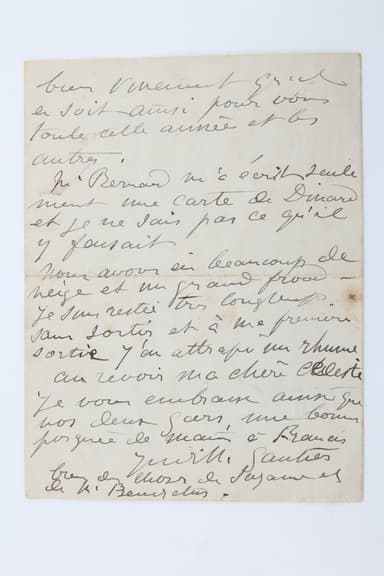 bien vivement qu'il
en soit ainsi pour vous
toute cette année et les
autres.
Mr Bernard m'a écrit seule
ment une carte de Dinard
et je ne sais pas ce qu'il
y faisait
nous avons eu beaucoup de
neige et un grand froid -
je suis restée très longtemps
sans sortir et à ma première
sortie j'ai attrapé un rhume
au revoir ma chère Céleste
je vous embrasse ainsi que
vos deux gars, une bonne
poignée de mains à Francis
Judith Gautier
bien des choses de Suzanne et
de Mr Benedictus.